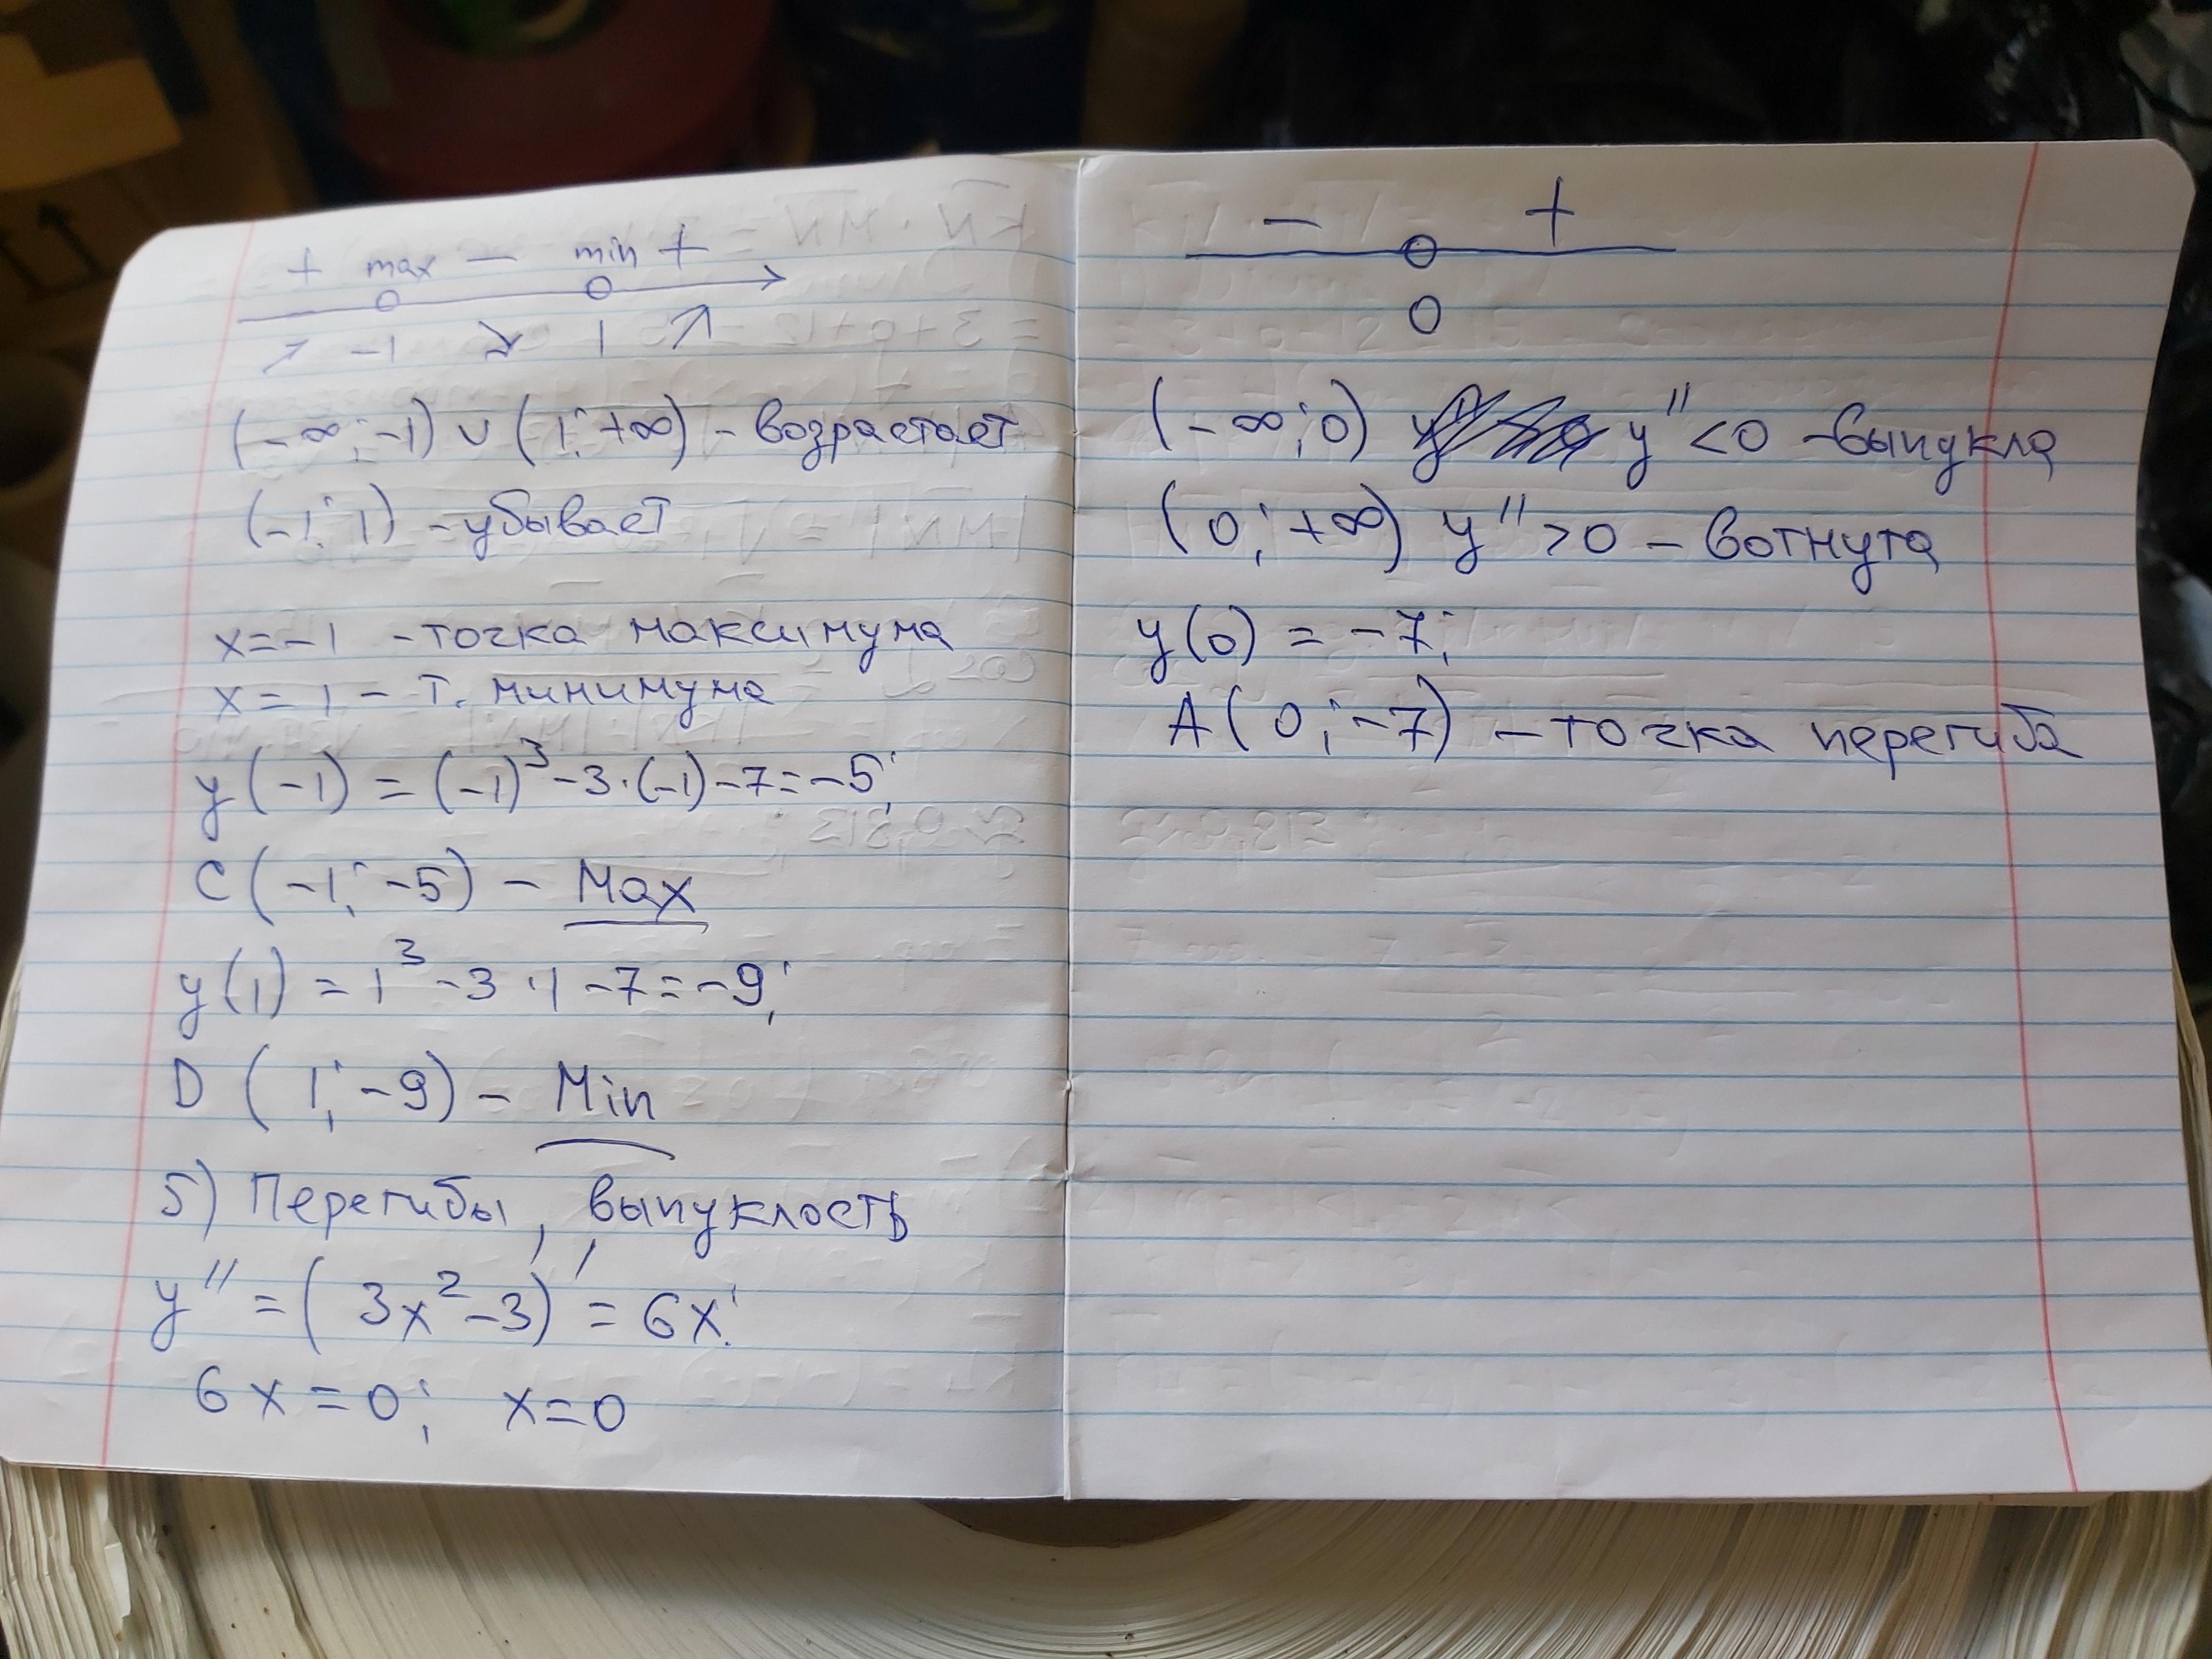 + max − min +
↗ -1 ↘ 1 ↗
(-∞; -1) ∪ (1; +∞) - возрастает
(-1; 1) - убывает
x = -1 - точка максимума
x = 1 - т. минимума
y(-1) = (-1)³ - 3·(-1) - 7 = -5;
C(-1; -5) - Max
y(1) = 1³ - 3·1 - 7 = -9;
D (1; -9) - Min
5) Перегибы, выпуклость
y'' = (3x² - 3)' = 6x;
6x = 0; x = 0
− +
0
(-∞; 0) y'' < 0 - выпукла
(0; +∞) y'' > 0 - вогнута
y(0) = -7;
A(0; -7) - точка перегиба